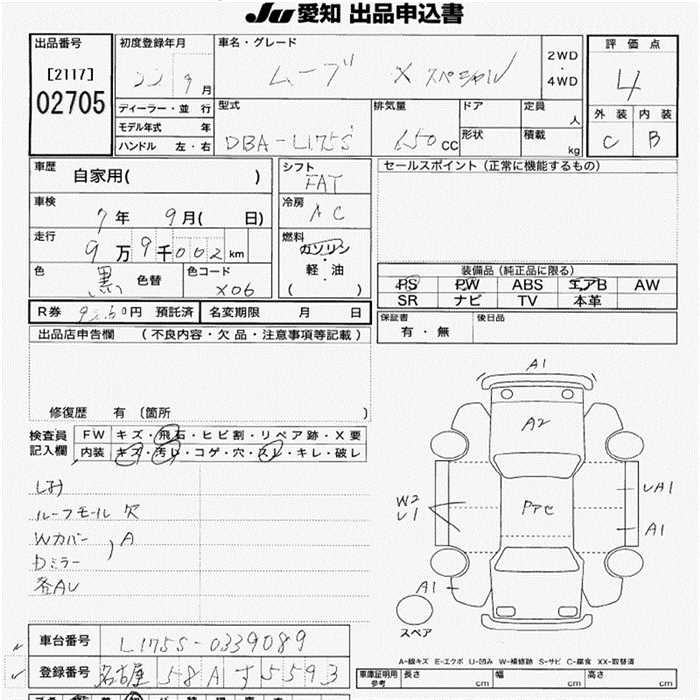 JU 愛知 出品申込書
出品番号
[2117]
02705
初度登録年月
22 9月
ディーラー・並 行
モデル年式 年
ハンドル 左・右
車名・グレード
ムーブ X スペシャル
2WD
・
4WD
型式
DBA-L175S
排気量
650 CC
ドア
形状
定員 人
積載 kg
評価点
4
外装 内装
C B
車歴
自家用( )
車検
7年 9月( 日)
走行
9万9千002km
色
黒 色替
色コード
X06
シフト
FAT
冷房
AC
燃料
ガソリン
・
軽・油
( )
セールスポイント (正常に機能するもの)
装備品(純正品に限る)
PS PW ABS エアB AW
SR ナビ TV 本革
R券 円 預託済
名変期限 月 日
保証書
有・無
後日品
出品店申告欄 (不良内容・欠品・注意事項等記載)
修復歴 有 (箇所 )
検査員
記入欄
FW キズ・飛石・ヒビ割・リペア跡・X要
内装 キズ・汚レ・コゲ・穴・スレ・キレ・破レ
ルーフモール 欠
Wカバー
A
Dミラー
各AU
A1
A2
Pアセ
W2
U1
UA1
A1
A1
スペア
A-線キズ E-エクボ U-凹み W-補修跡 S-サビ C-腐食 XX-取替済
車台番号
L175S-0339089
登録番号
名古屋 58A す 5593
車庫証明用
参考
長さ cm
幅 cm
高さ cm